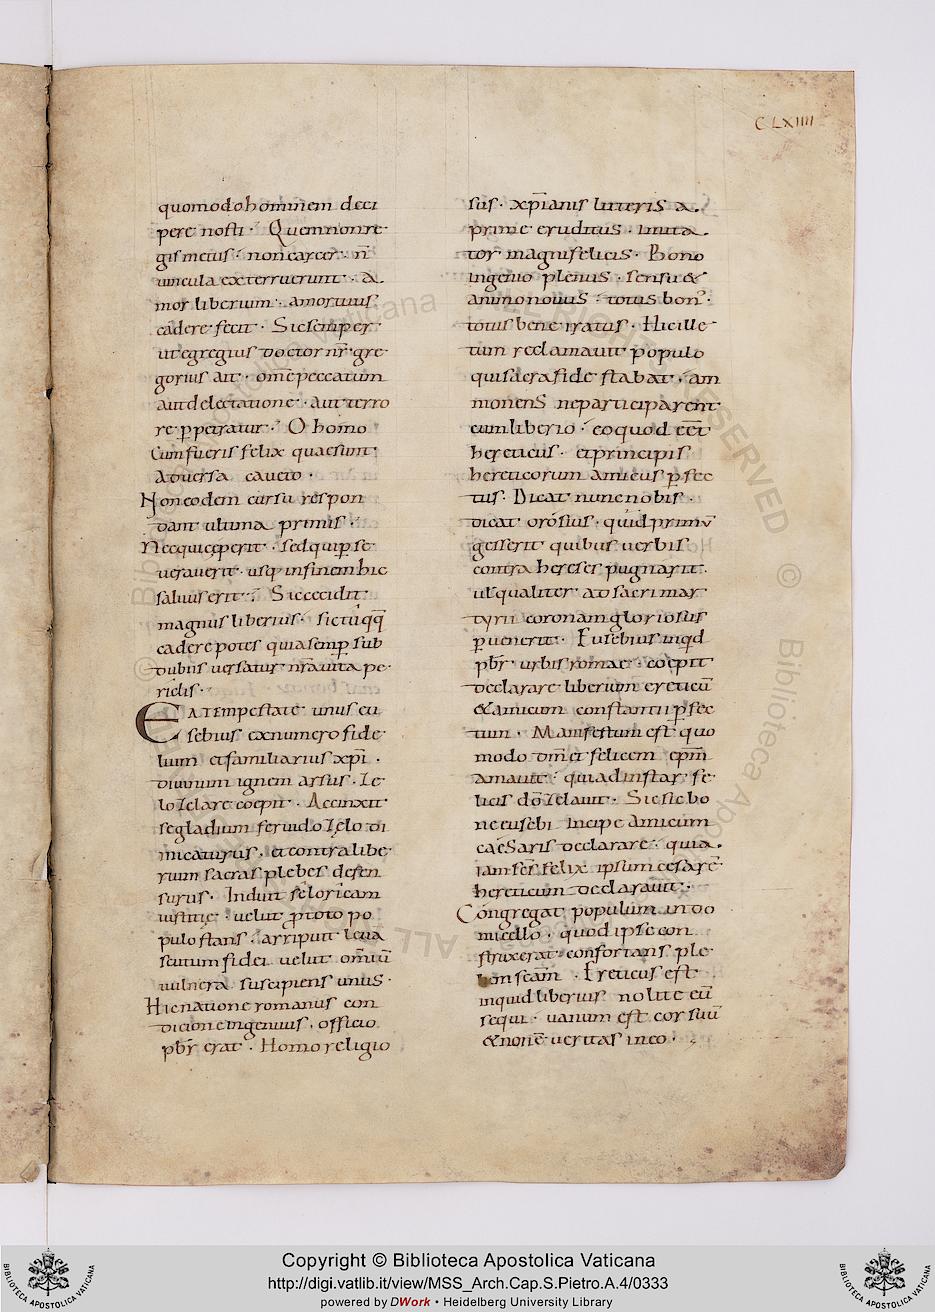 C LXIIII
quomodo hominem deci
pere nosti · Quem non re
gis metus · non carcer · n̄
uincula exterruerunt · a
mor liberium · amor tuus
cadere fecit · Sic semper
ut egregius doctor nr̄ gre
gorius ait · om̄e peccatum
aut delectatione · aut terro
re ꝑpetratur · O homo
cum fueris felix quae sunt
aduersa caueto ·
Non eodem cursu respon
dent ultima primis ·
Nec qui ceperit · sed qui ꝑse
uerauerit · usq; in finem hic
saluus erit · Sic cecidit
magnus liberius · sic tu qq̄
cadere potes quia semp̄ sub
dubiis uersatur nr̄a uita pe
riclis ·
EA TEMPESTATE unus eu
sebius ex numero fide
lium et familiarius xp̄i ·
diuinum ignem arsus · Ze
lo Zelare coepit · Accinxit
se gladium feruido Zelo di
micaturus · et contra libe
rium sacras plebes defen
surus · Induit se loricam
iustitie · uelut ꝓ toto po
pulo stans · arripuit leua
scutum fidei uelut om̄iū
uulnera suscipiens unus ·
Hic natione romanus con
dicione ingenuus · officio
pb̄r erat · Homo religio
sus · xp̄ianis litteris a
prime eruditus · imita
tor magni felicis · Bono
ingenio plenus · sensu &
animo nouus · totus bon᷒ ·
totus bene iratus · Hic ille
tum reclamauit populo
qui sacra fide stabat · am
monens ne participarent
cum liberio · eo quod eēt
hereticus · et principis
hereticorum amicus ꝑfec
tus · Dicat nunc nobis ·
dicat orosius · quid primū
gesserit quibus uerbis
contra hereses pugnarit ·
ul̄ qualiter ad sacri mar
tyrii coronam gloriosus
ꝑuenerit · Eusebius inqd
pb̄r urbis romae · coepit
declarare liberium ereticū
& amicum constantii ꝑfec
tum · Manifestum est quo
modo dm̄ et felicem ep̄m
amauit · qui ad instar fe
licis dō Zelauit · Sic sic bo
ne eusebi incipe amicum
caesaris declarare · quia
iam ser̄ felix ipsum cesarē
hereticum declarauit ·
Congregat populum in do
micello · quod ipse con
struxerat · confortans ple
bem scam̄ · Ereticus est
inquid liberius nolite eū
sequi · uanum est cor suū
& non ē ueritas in eo ·
Copyright © Biblioteca Apostolica Vaticana
http://digi.vatlib.it/view/MSS_Arch.Cap.S.Pietro.A.4/0333
powered by DWork • Heidelberg University Library